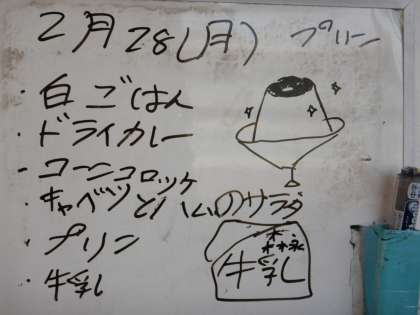 2月28(月) プリン
・白ごはん
・ドライカレー
・コーンコロッケ
・キャベツとハムのサラダ
・プリン
・牛乳
森永
牛乳